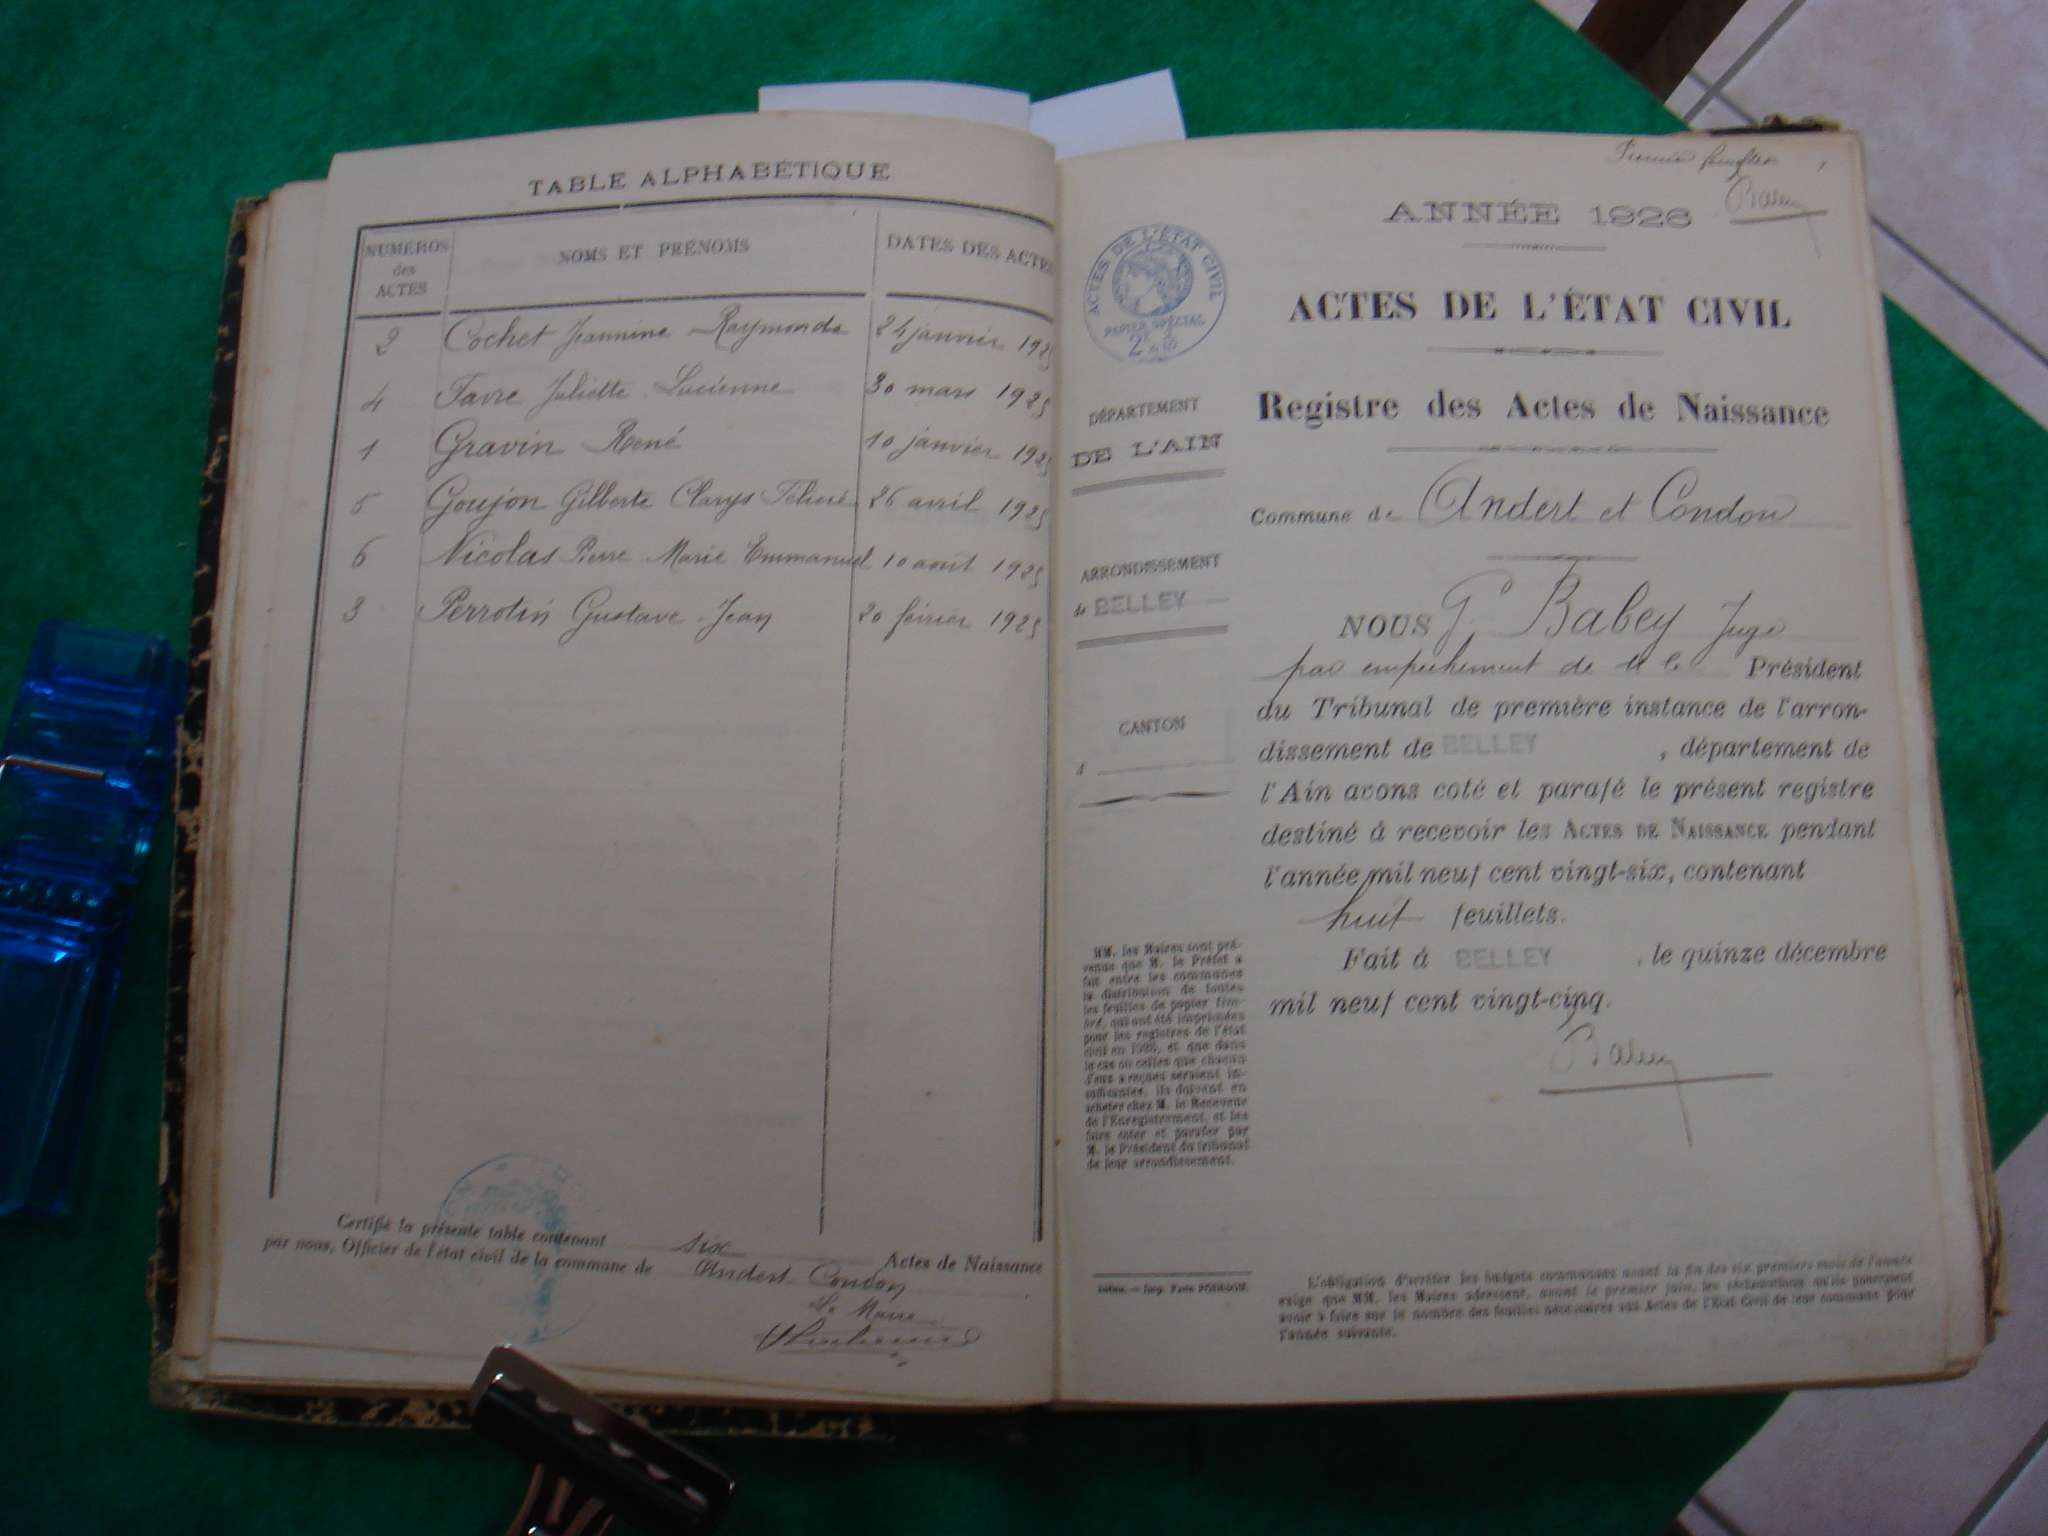 TABLE ALPHABÉTIQUE
NUMÉROS des ACTES
NOMS ET PRÉNOMS
DATES DES ACTES
2 Cochet Jeannine Raymonde 24 janvier 1925
4 Favre Juliette Lucienne 30 mars 1925
1 Gravin René 10 janvier 1925
5 Goujon Gilberte Clarys 26 avril 1925
6 Nicolas Pierre Marie Emmanuel 10 août 1925
3 Perrotin Gustave Jean 20 février 1925
Certifié la présente table contenant six Actes de Naissance
par nous, Officier de l'état civil de la commune de Andert Condon
Le Maire
Premier feuillet 1
ANNÉE 1926
ACTES DE L'ÉTAT CIVIL
PAPIER SPÉCIAL
DÉPARTEMENT
DE L'AIN
ARRONDISSEMENT
de BELLEY
CANTON
d
MM. les Maires sont pré-
venus que M. le Préfet a
fait entre les communes
la distribution de toutes
les feuilles de papier tim-
bré, qui ont été imprimées
pour les registres de l'état
civil en 1926, et que dans
le cas où celles que chacun
d'eux a reçues seraient in-
suffisantes, ils doivent en
acheter chez M. le Receveur
de l'Enregistrement, et les
faire coter et parafer par
M. le Président du tribunal
de leur arrondissement.
ACTES DE L'ÉTAT CIVIL
Registre des Actes de Naissance
Commune de Andert et Condon
NOUS G. Babey Juge
par empêchement de Président
du Tribunal de première instance de l'arron-
dissement de BELLEY , département de
l'Ain avons coté et parafé le présent registre
destiné à recevoir les ACTES DE NAISSANCE pendant
l'année mil neuf cent vingt-six, contenant
huit feuillets.
Fait à BELLEY , le quinze décembre
mil neuf cent vingt-cinq.
Babey
L'obligation d'arrêter les budgets communaux avant la fin des six premiers mois de l'année
exige que MM. les Maires adressent, avant le premier juin, les réclamations qu'ils pourraient
avoir à faire sur le nombre des feuilles nécessaires aux Actes de l'État Civil de leur commune pour
l'année suivante.